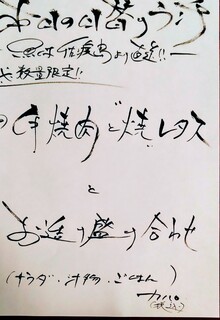 本日の日替りランチ
魚は佐渡島より直送!!
☆数量限定!!
牛焼肉と焼レタス
と
お造り盛り合わせ
(サラダ・汁物・ごはん)
(税込)